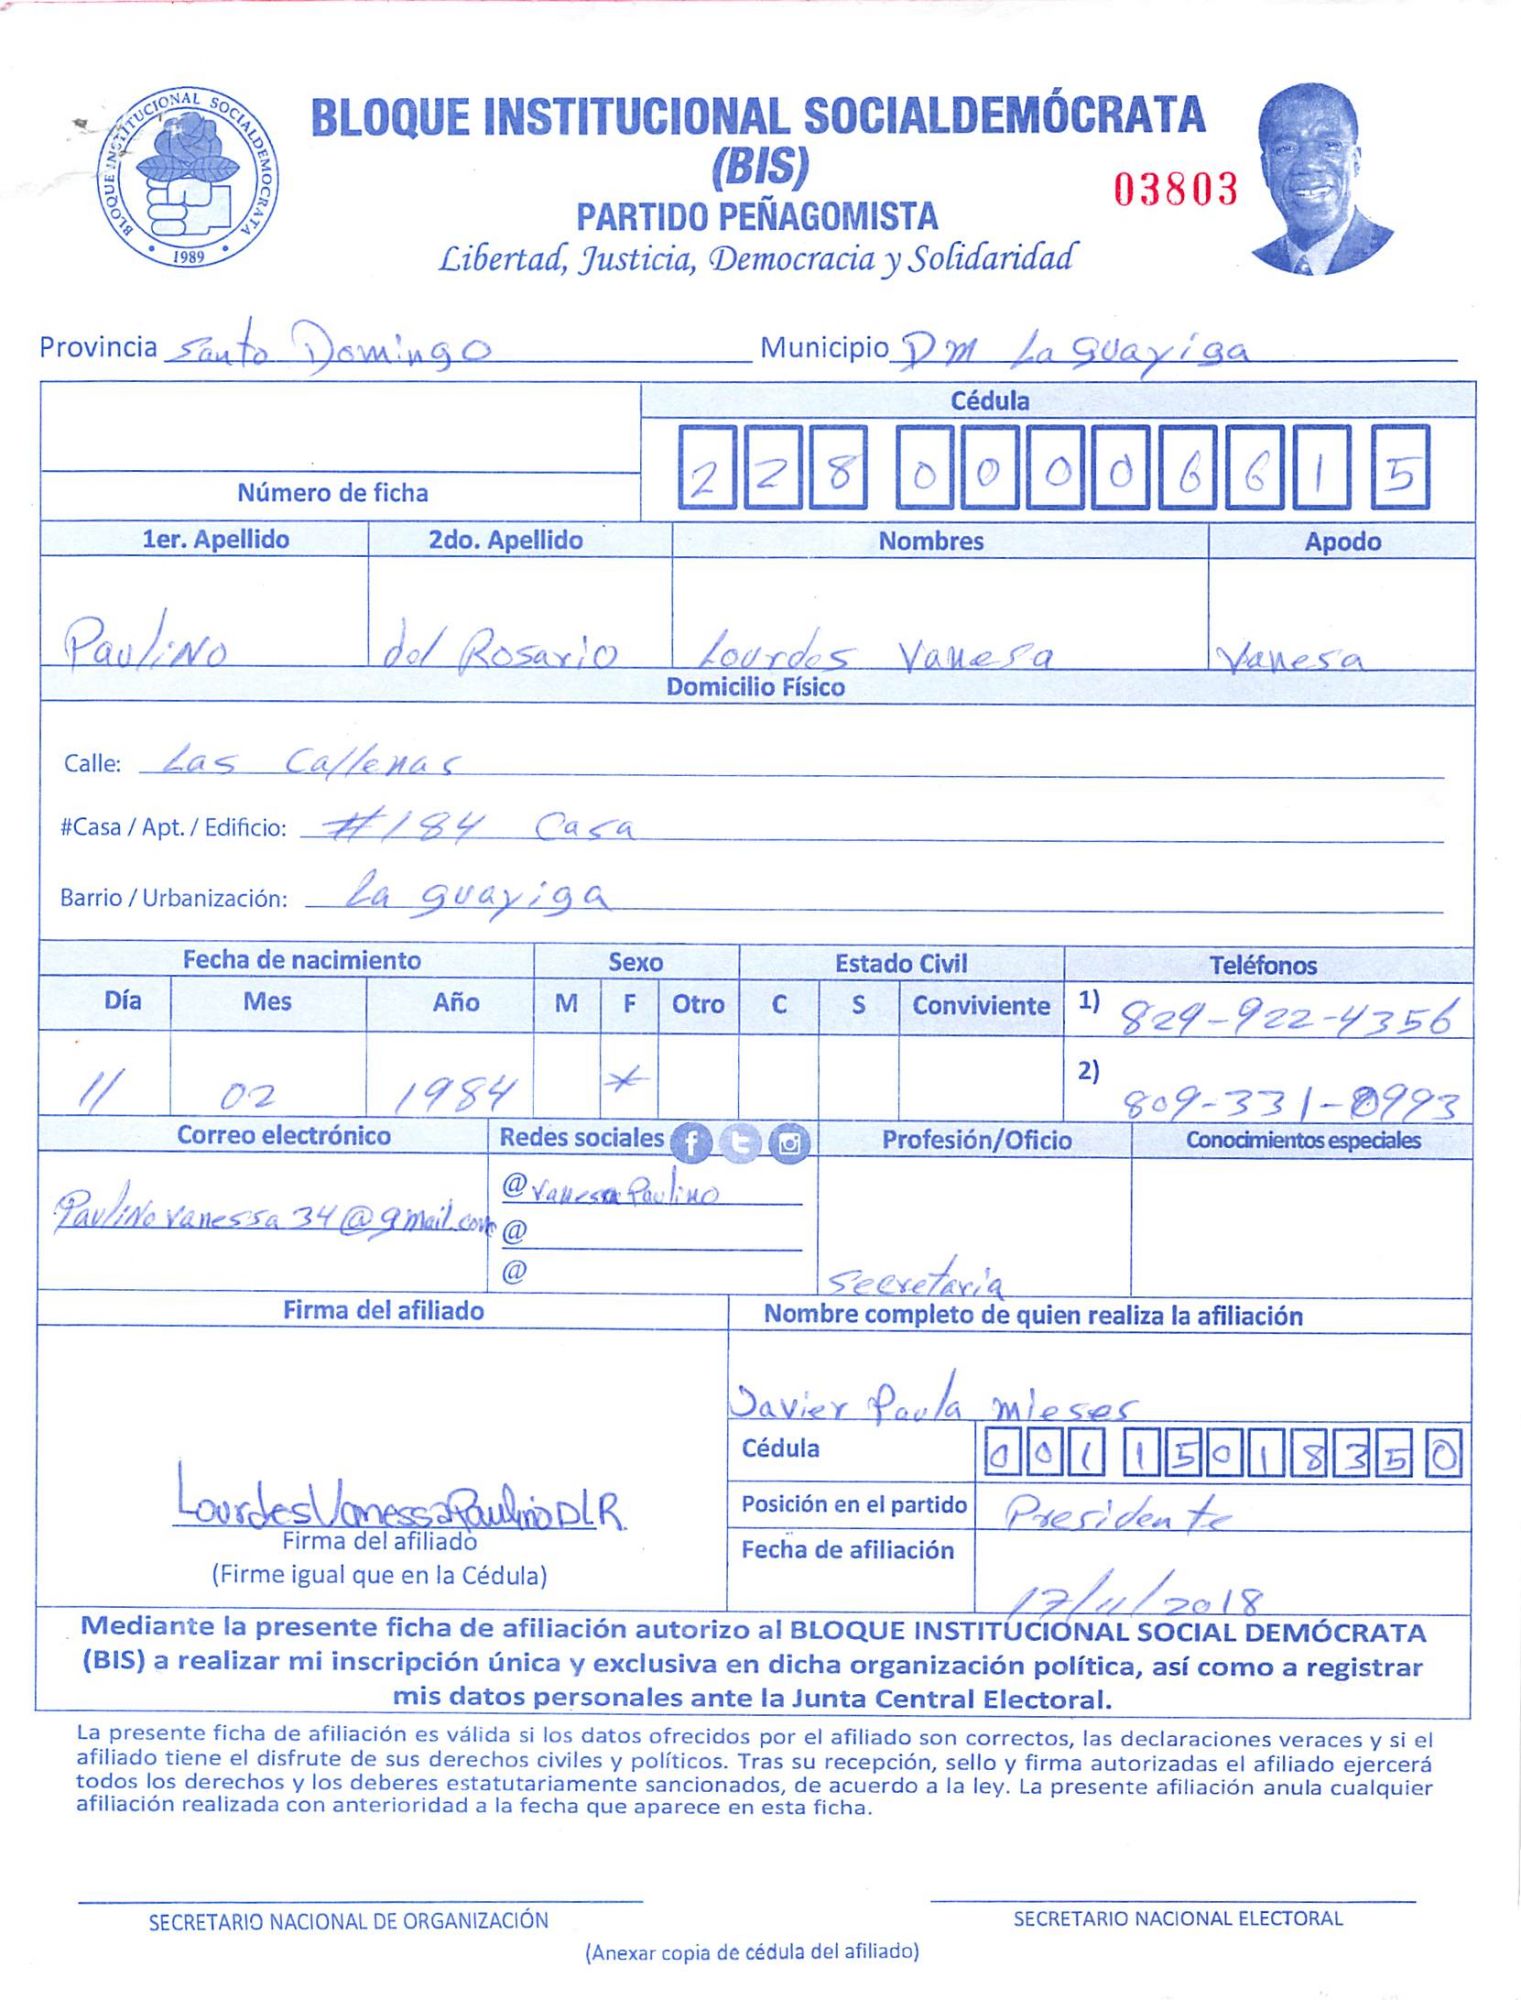 BLOQUE INSTITUCIONAL SOCIALDEMOCRATA
1989
BLOQUE INSTITUCIONAL SOCIALDEMÓCRATA
(BIS)
03803
PARTIDO PEÑAGOMISTA
Libertad, Justicia, Democracia y Solidaridad
Provincia Santo Domingo Municipio DM La Guayiga
Cédula
2 2 8 0 0 0 0 6 6 1 5
Número de ficha
1er. Apellido 2do. Apellido Nombres Apodo
Paulino del Rosario Lourdes Vanesa Vanesa
Domicilio Físico
Calle: Las Callenas
#Casa / Apt. / Edificio: #184 Casa
Barrio / Urbanización: La guayiga
Fecha de nacimiento Sexo Estado Civil Teléfonos
Día Mes Año M F Otro C S Conviviente 1) 829-922-4356
11 02 1984 * 2) 809-331-0993
Correo electrónico Redes sociales Profesión/Oficio Conocimientos especiales
Paulinovanessa34@gmail.com @vanessa Paulino
@
@
Secretaria
Firma del afiliado Nombre completo de quien realiza la afiliación
Javier Paula mieses
Cédula 0 0 1 1 5 0 1 8 3 5 0
Lourdes Vanessa Paulino DLR Posición en el partido Presidente
Firma del afiliado Fecha de afiliación
(Firme igual que en la Cédula) 17/11/2018
Mediante la presente ficha de afiliación autorizo al BLOQUE INSTITUCIONAL SOCIAL DEMÓCRATA
(BIS) a realizar mi inscripción única y exclusiva en dicha organización política, así como a registrar
mis datos personales ante la Junta Central Electoral.
La presente ficha de afiliación es válida si los datos ofrecidos por el afiliado son correctos, las declaraciones veraces y si el
afiliado tiene el disfrute de sus derechos civiles y políticos. Tras su recepción, sello y firma autorizadas el afiliado ejercerá
todos los derechos y los deberes estatutariamente sancionados, de acuerdo a la ley. La presente afiliación anula cualquier
afiliación realizada con anterioridad a la fecha que aparece en esta ficha.
SECRETARIO NACIONAL DE ORGANIZACIÓN SECRETARIO NACIONAL ELECTORAL
(Anexar copia de cédula del afiliado)